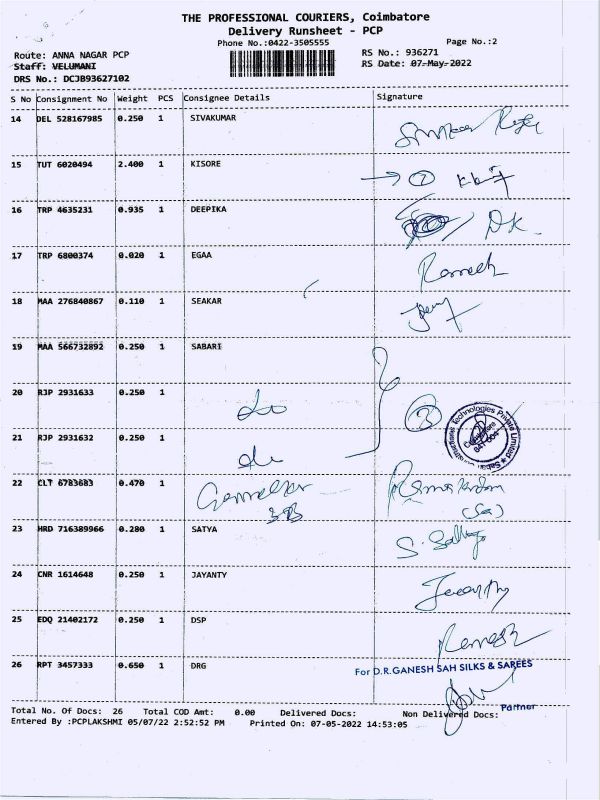 THE PROFESSIONAL COURIERS, Coimbatore
Delivery Runsheet - PCP
Phone No.:0422-3505555 Page No.:2
Route: ANNA NAGAR PCP RS No.: 936271
Staff: VELUMANI RS Date: 07-May-2022
DRS No.: DCJB93627102
S No Consignment No Weight PCS Consignee Details Signature
14 DEL 528167985 0.250 1 SIVAKUMAR
15 TUT 6020494 2.400 1 KISORE
16 TRP 4635231 0.935 1 DEEPIKA DK
17 TRP 6800374 0.020 1 EGAA Ramesh
18 MAA 276840867 0.110 1 SEAKAR
19 MAA 566732892 0.250 1 SABARI
20 RJP 2931633 0.250 1 do
21 RJP 2931632 0.250 1 do
22 CLT 6783683 0.470 1
23 HRD 716389966 0.280 1 SATYA
24 CNR 1614648 0.250 1 JAYANTY Jayanthy
25 EDQ 21402172 0.250 1 DSP Ramesh
26 RPT 3457333 0.650 1 DRG
For D.R.GANESH SAH SILKS & SAREES
Partner
Total No. Of Docs: 26 Total COD Amt: 0.00 Delivered Docs: Non Delivered Docs:
Entered By :PCPLAKSHMI 05/07/22 2:52:52 PM Printed On: 07-05-2022 14:53:05